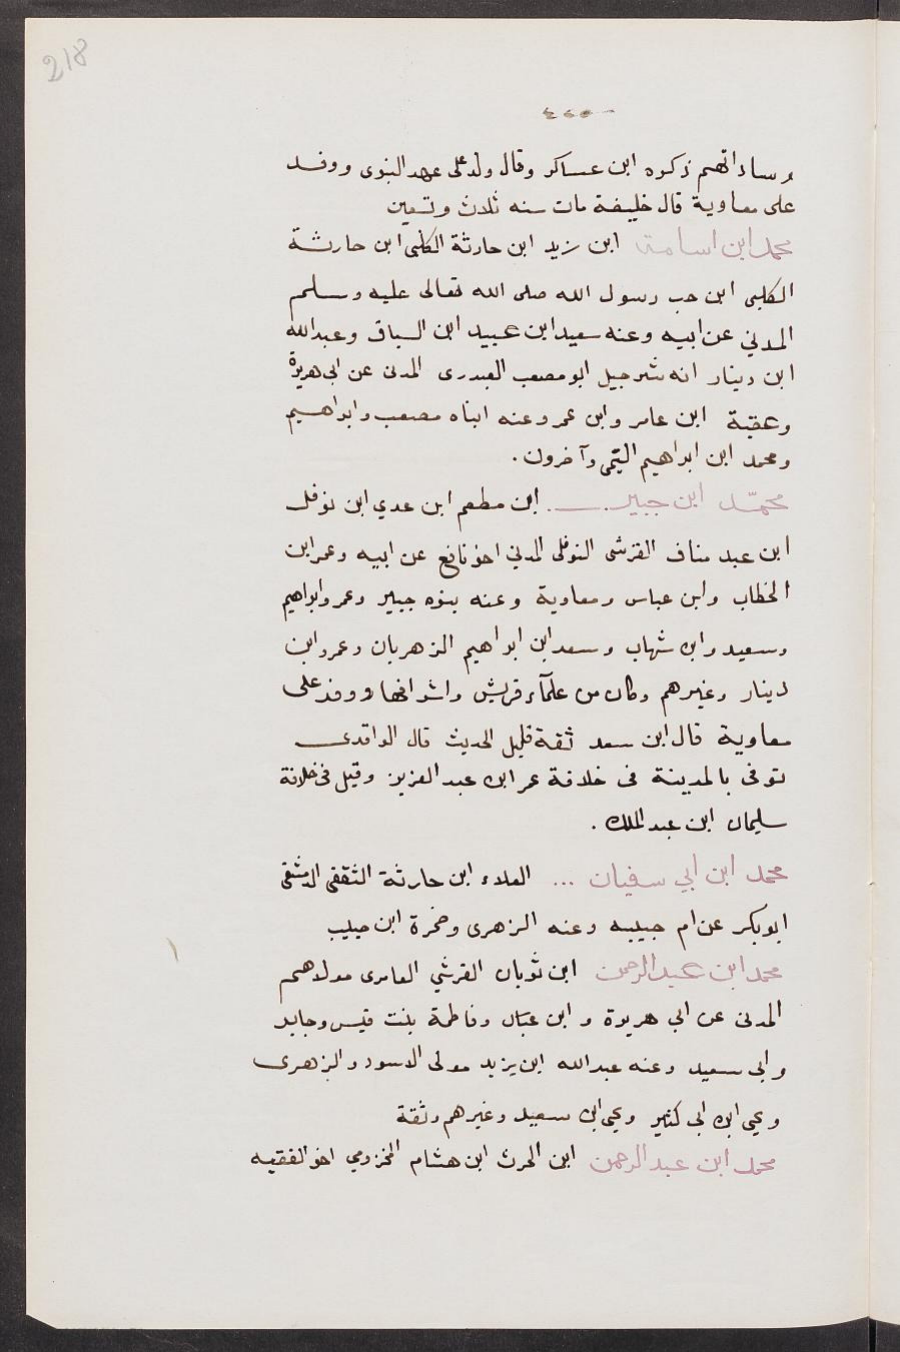 218
وساداتهم ذكره ابن عساكر وقال ولد على عهد النبوى ووفد
على معاوية قال خليفة مات سنه ثلاث وتسعين
محمد ابن اسامة ابن زيد ابن حارثة الكلبى ابن حارثة
الكلبى ابن حب رسول الله صلى الله تعالى عليه وسلم
المدني عن ابيه وعنه سعيد ابن عبيد ابن السباق وعبدالله
ابن دينار انه شرحبيل ابو مصعب العبدرى المدنى عن ابى هريرة
وعقبة ابن عامر وابن عمر وعنه ابناه مصعب وابراهيم
ومحمد ابن ابراهيم التيمى وآخرون .
محمّد ابن جبير ... ابن مطعم ابن عدي ابن نوفل
ابن عبد مناف القرشى النوفلى المدني اخو نافع عن ابيه وعمر ابن
الخطاب وابن عباس ومعاوية وعنه بنوه جبير وعمر وابراهيم
وسعيد وابن شهاب وسعد ابن ابراهيم الزهريان وعمرو ابن
دينار وغيرهم وكان من علمآء قريش واشرافها ووفد على
معاوية قال ابن سعد ثقة قليل الحديث قال الواقدى
توفى بالمدينة فى خلافة عمر ابن عبد العزيز وقيل فى خلافة
سليمان ابن عبد الملك .
محمد ابن ابي سفيان ... العلاء ابن حارثة الثقفى الدمشقى
ابوبكر عن ام حبيبه وعنه الزهرى وضمرة ابن حبيب
محمد ابن عبد الرحمن ابن ثوبان القرشي العامرى مولاهم
المدنى عن ابي هريرة و ابن عباس وفاطمة بنت قيس وجابر
وابى سعيد وعنه عبدالله ابن يزيد مولى الاسود والزهرى
ويحي ابن ابى كثير ويحي ابن سعيد وغيرهم وثقة
محمد ابن عبد الرحمن ابن الحرث ابن هشام المخزومي اخو الفقيه